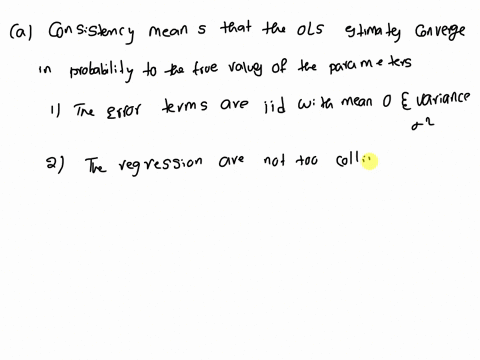 (a) Consistency means that the OLS estimates converge
in probability to the true value of the parameters
1) The error terms are iid with mean 0 & variance
σ²
2) The regression are not too colli